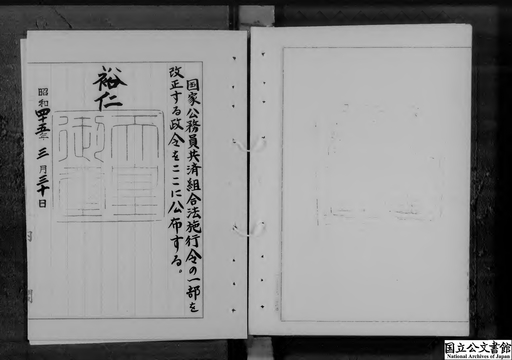 国家公務員共済組合法施行令の一部を
改正する政令をここに公布する。
裕仁
天皇御璽
昭和四十五年三月三十日
国立公文書館
National Archives of Japan